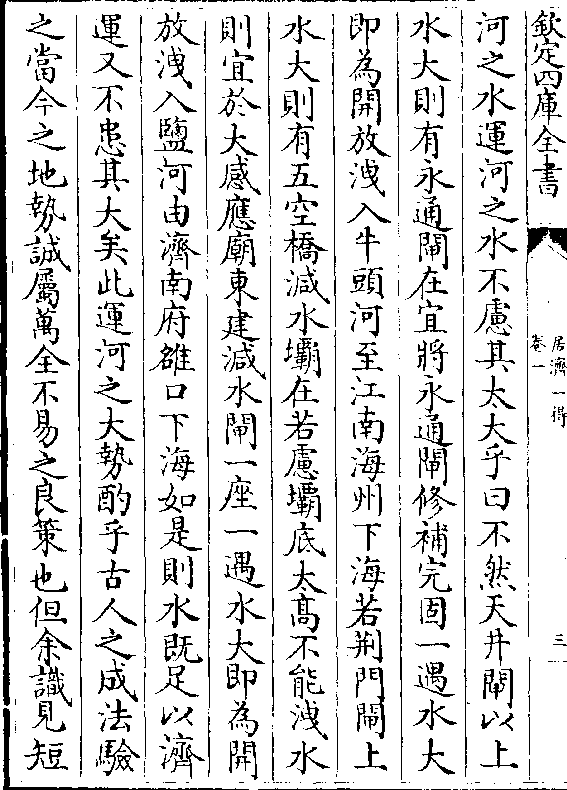 欽定四庫全書
居濟一得
卷一
三
河之水運河之水不慮其太大乎曰不然天井閘以上
水大則有永通閘在宜將永通閘修補完固一遇水大
即為開放洩入牛頭河至江南海州下海若荆門閘上
水大則有五空橋減水壩在若慮壩底太髙不能洩水
則宜於大感應廟東建減水閘一座一遇水大即為開
放洩入鹽河由濟南府雒口下海如是則水既足以濟
運又不患其大矣此運河之大勢酌乎古人之成法驗
之當今之地勢誠屬萬全不易之良策也但余識見短